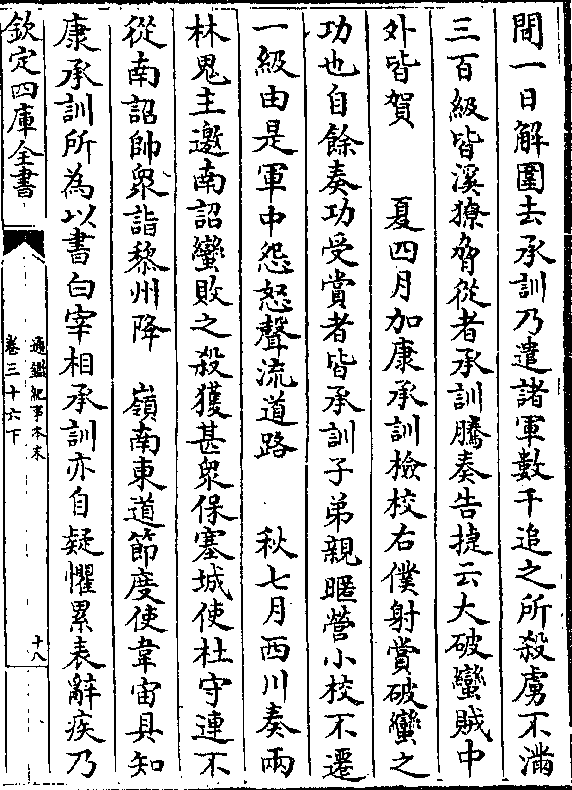 間一日解圍去承訓乃遣諸軍數千追之所殺虜不滿
三百級皆溪獠脅從者承訓騰奏告捷云大破蠻賊中
外皆賀　夏四月加康承訓檢校右僕射賞破蠻之
功也自餘奏功受賞者皆承訓子弟親暱營小校不遷
一級由是軍中怨怒聲流道路　秋七月西川奏兩
林鬼主邀南詔蠻敗之殺獲甚衆保塞城使杜守連不
從南詔帥衆詣黎州降　嶺南東道節度使韋宙具知
康承訓所為以書白宰相承訓亦自疑懼累表辭疾乃
欽定四庫全書
通鑑紀事本末
卷三十六下
十八